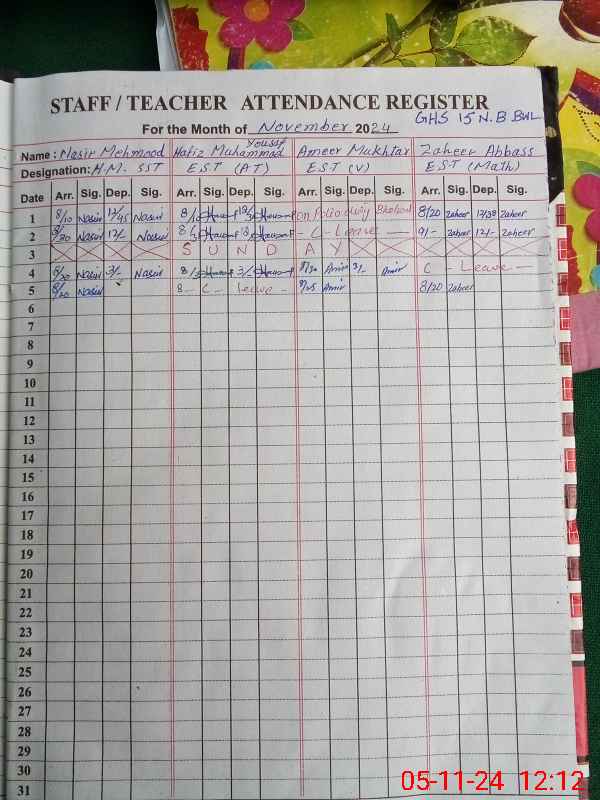 STAFF / TEACHER ATTENDANCE REGISTER
GHS 15 N.B BWL
For the Month of November 2024
Name : Nasir Mehmood Hafiz Muhammad Yousaf Ameer Mukhtar Zaheer Abbass
Designation: H.M. SST E.S.T (A T) E.S.T (V) E.S.T (Math)
Date Arr. Sig. Dep. Sig. Arr. Sig. Dep. Sig. Arr. Sig. Dep. Sig. Arr. Sig. Dep. Sig.
1 8/10 Nasir 12/45 Nasir 8/10 on Polio duty 8/20 Zaheer 12/30 Zaheer
2 8/20 Nasir 12/- Nasir - C - Leave - 9/- Zaheer 12/- Zaheer
3 S U N D A Y
4 8/20 Nasir 3/- Nasir 3/- 8/20 Amir 3/- Amir C - Leave -
5 8/20 Nasir 8 - C - Leave - 8/25 Amir 8/20 Zaheer
6
7
8
9
10
11
12
13
14
15
16
17
18
19
20
21
22
23
24
25
26
27
28
29
30
31
05-11-24 12:12